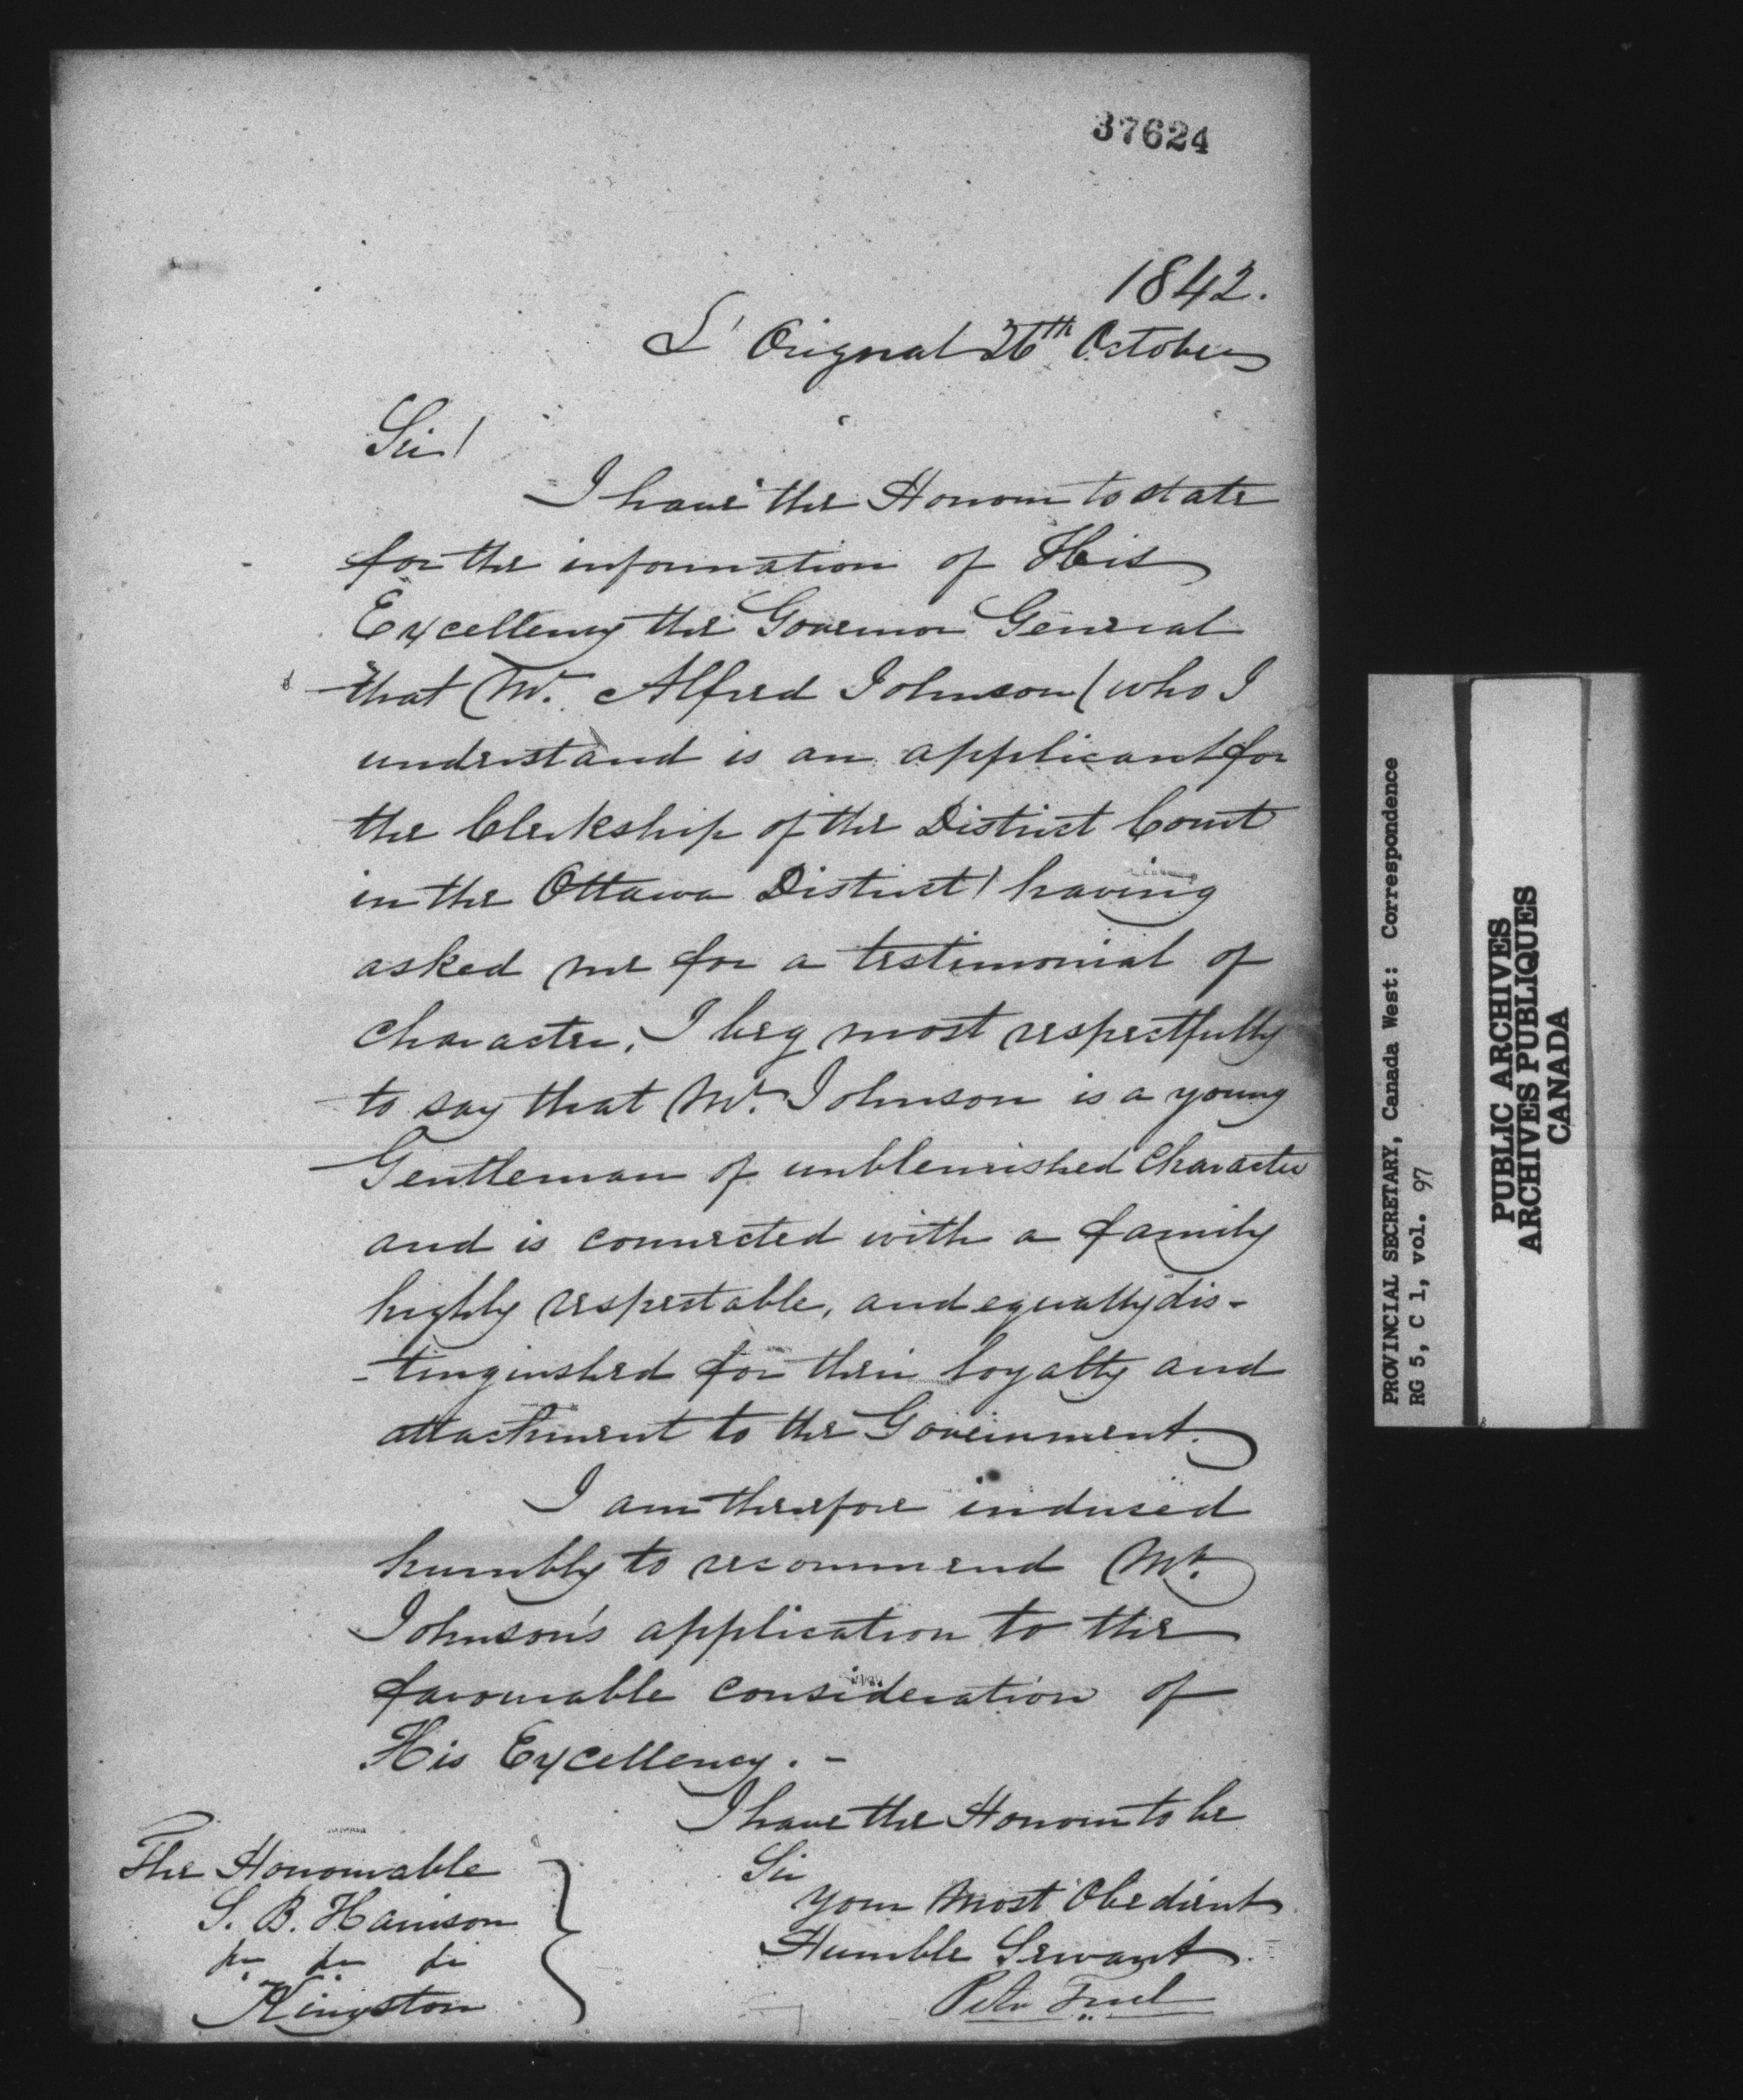 37624
1842.
L'Orignal 26th October
Sir!
I have the Honour to state
for the information of His
Excellency the Governor General
that Mr. Alfred Johnson (who I
understand is an applicant for
the Clerkship of the District Court
in the Ottawa District) having
asked me for a testimonial of
character, I beg most respectfully
to say that Mr. Johnson is a young
Gentleman of unblemished Character
and is connected with a family
highly respectable, and equally dis-
-tinguished for their loyalty and
attachment to the Government.
I am therefore induced
humbly to recommend Mr.
Johnson's application to the
favourable consideration of
His Excellency. -
I have the Honour to be
Sir
Your Most Obedient
Humble Servant
Peter Freel
The Honourable
S. B. Harrison
Kingston
PROVINCIAL SECRETARY, Canada West: Correspondence
RG 5, C 1, vol. 97
PUBLIC ARCHIVES
ARCHIVES PUBLIQUES
CANADA